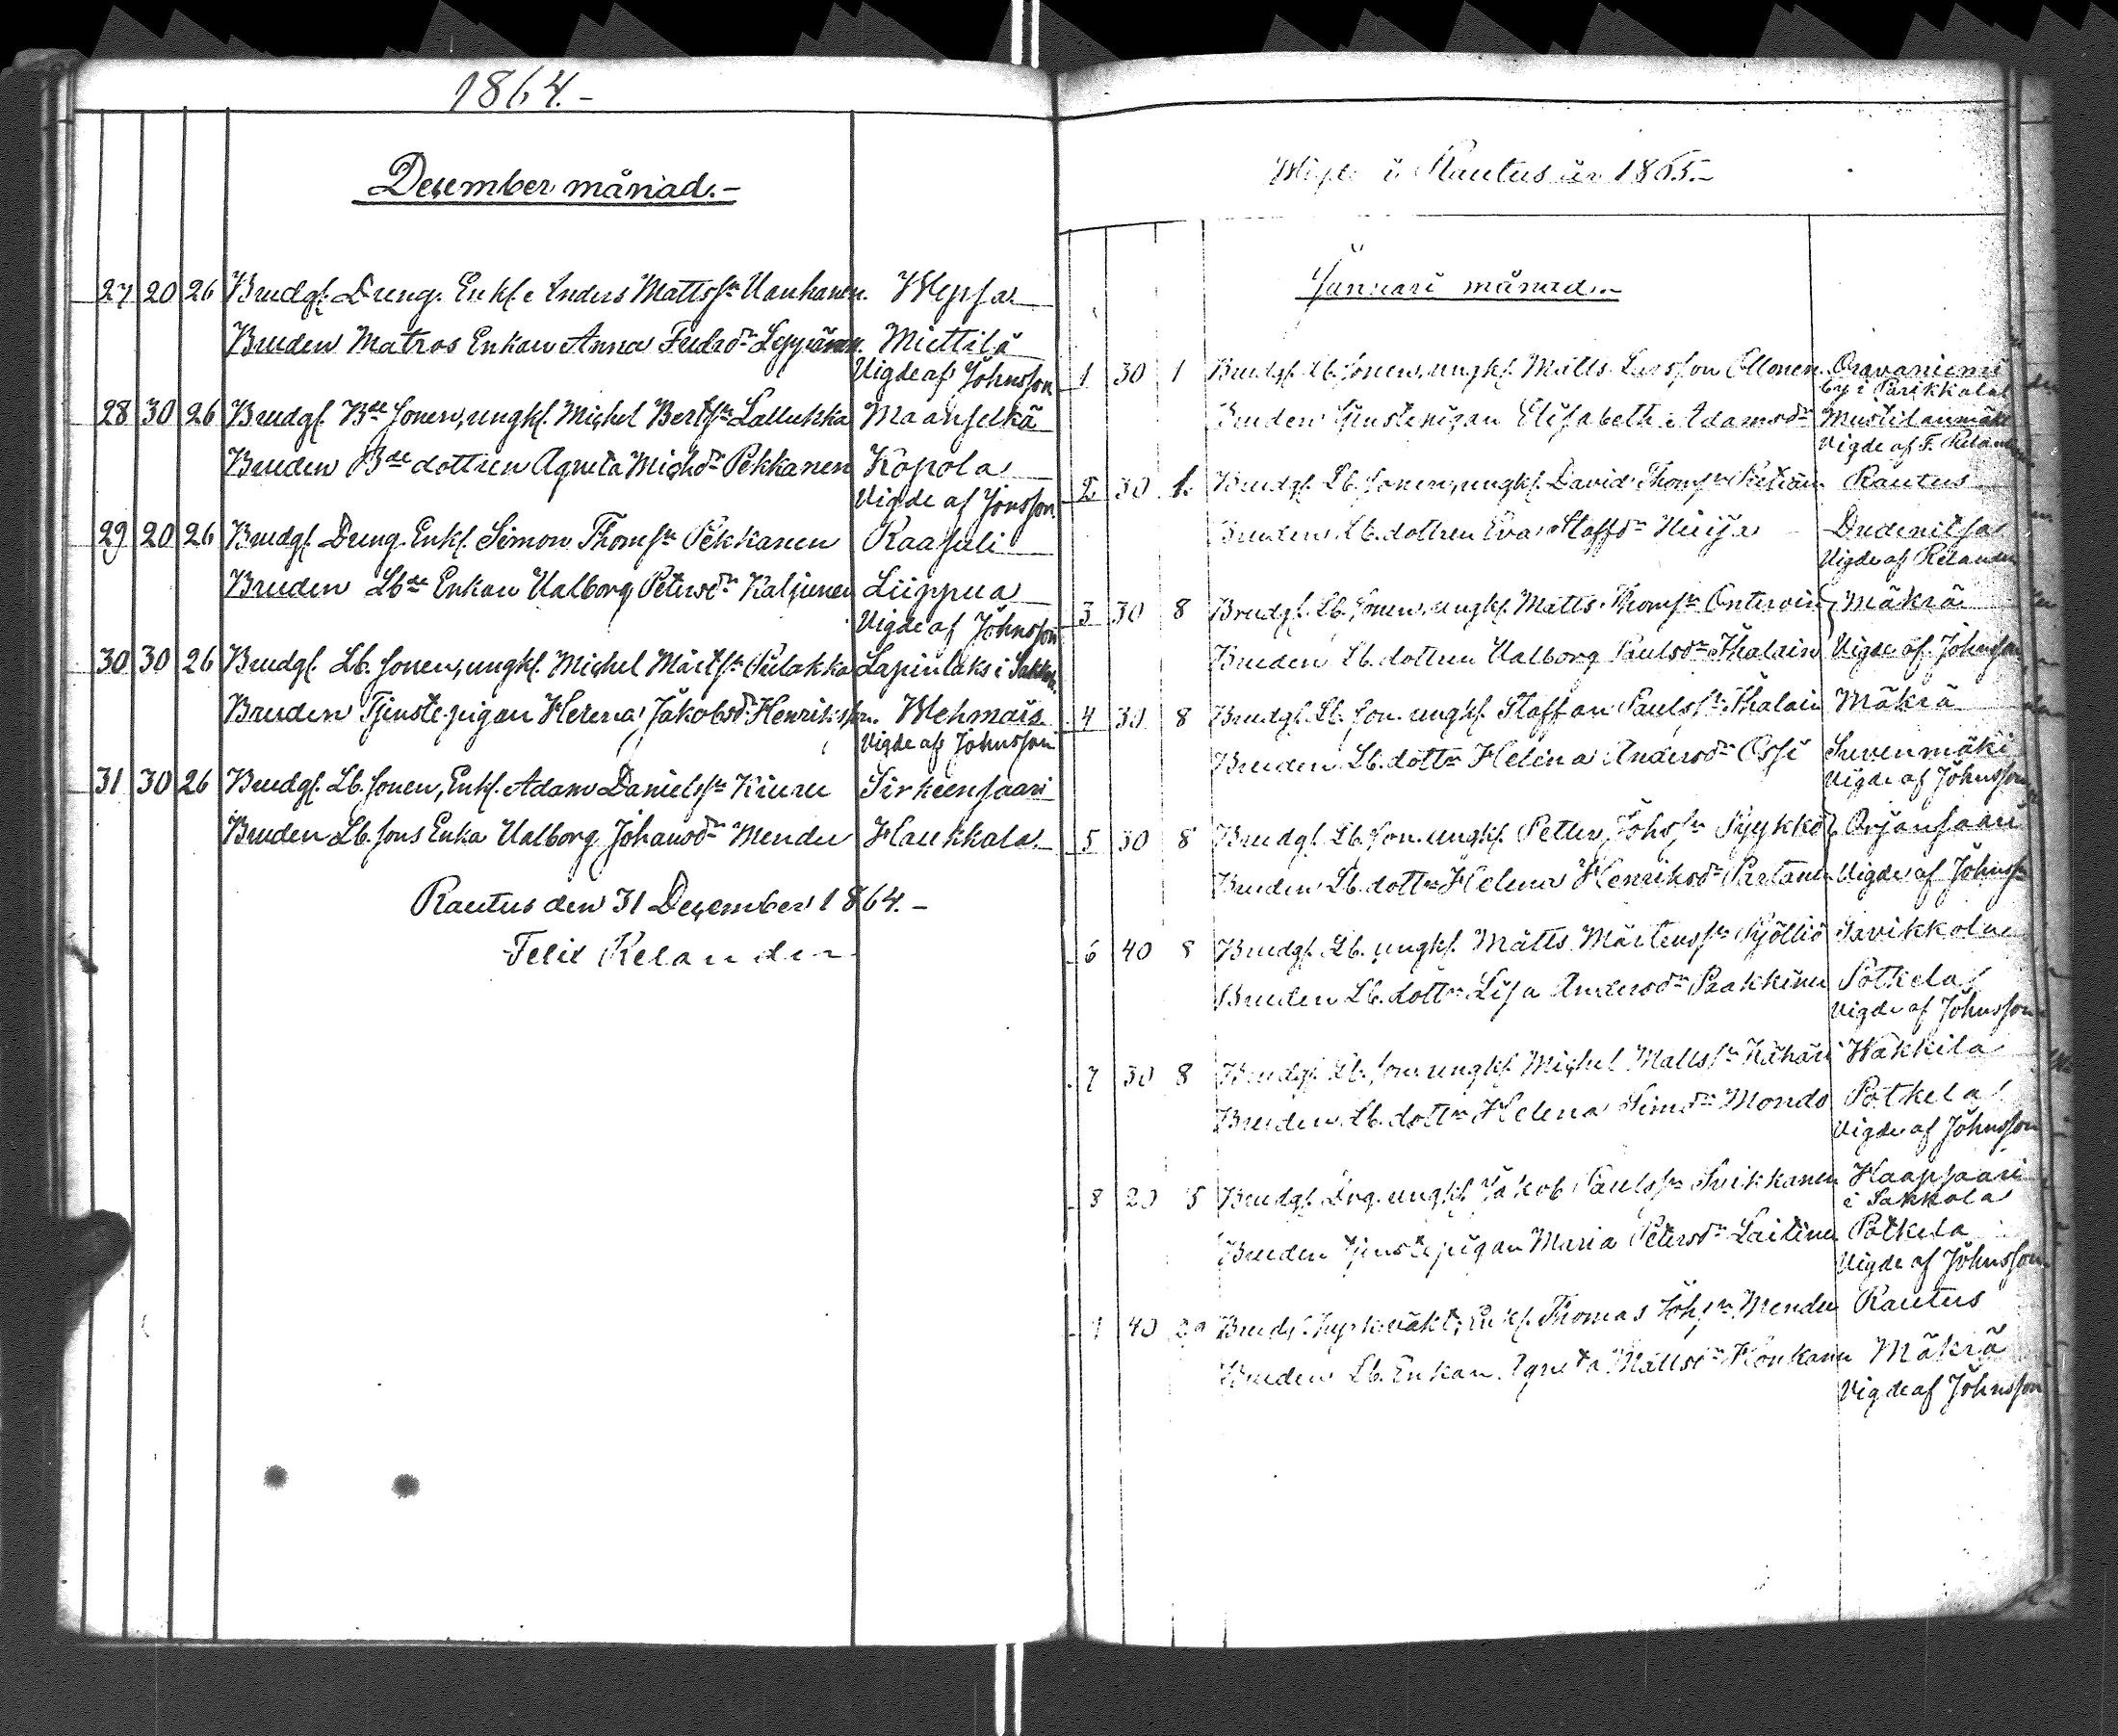 1864.-
December månad.-
27 20 26 Brudg. Dreng. Enkl. Anders Mattss:n Vanhanen. Wepsa
Bruden Matros Enkan Anna Fredrsd:r Leppänen. Miettilä
Vigde af Johnsson
28 30 26 Brudg. B:de sonen, ungk. Michel Bertss:n Lallukka Maanselkä
Bruden B:de dottren Agneta Michsd:r Pekkanen Kopola
Vigde af Jonsson
29 20 26 Brudg. Dreng. Enkl. Simon Thomss:n Pekkanen Raasuli
Bruden Lb:de Enkan Valborg Petersd:r Kaljunen Liippua
Vigde af Johnsson
30 30 26 Brudg. Lb. sonen, ungk. Michel Märtss:n Pulakka Lapinlaks i Sakkola
Bruden Tjenstepigan Helena Jakobsd:r Henriksson. Wehmais
Vigde af Johnsson
31 30 26 Brudg. Lb. sonen, Enkl. Adam Danielss:n Kiuru Sirkeensaari
Bruden Lb. sons Enka Valborg Johansd:r Mendu Haukkala
Rautus den 31 December 1864.-
Felix Relander
Vigde i Rautus år 1865.-
Januari månad.-
1 30 1 Brudg. Lb. sonen, ungk. Matts Larsson Ollonen Oravaniemi
by i Parikkala
Bruden tjenstepigan Elisabeth Adamsd:r Mustilanmäki
Vigde af F. Relander
2 30 1. Brudg. Lb. sonen, ungk. David Thomss:n Rautus
Bruden Lb. dottren Eva Staffsd:r Huija Dudenitsa
Vigde af Relander
3 30 8 Brudg. Lb. sonen, ungk. Matts Thomss:n Ontervin Mäkrä
Bruden Lb. dottren Valborg Paulsd:r Ihalain Vigde af Johnsson
4 30 8 Brudg. Lb. son. ungk. Staffan Paulss:n Ihalain Mäkrä
Bruden Lb. dott:n Helena Andersd:r Ossi Suvenmäki
Vigde af Johnsson
5 30 8 Brudg. Lb. son. ungk. Petter Johss:n Pyykkö Orjansaari
Bruden Lb. dott:n Helena Henriksd:r Partanen Vigde af Johnss:n
6 40 8 Brudg. Lb. ungk. Matts Mårtenss:n Pyölliö Savikkola
Bruden Lb. dott:n Lisa Andersd:r Paakkinen Potkela
Vigde af Johnsson
7 30 8 Brudg. Lb. son. ungk. Michel Mattss:n Kähäri Wakkila
Bruden Lb. dott:n Helena Simsd:r Mondo Potkela
Vigde af Johnsson
8 20 15 Brudg. Drg. ungk. Jakob Paulss:n Suikkanen Haapsaari
i Sakkola
Bruden tjenstepigan Maria Petersd:r Laitinen Potkela
Vigde af Johnsson
9 40 29 Brudg. Enkl. Thomas Johss:n Mendu Rautus
Bruden Lb. Enkan Agneta Mattsd:r Houkanen Mäkrä
Vigde af Johnsson